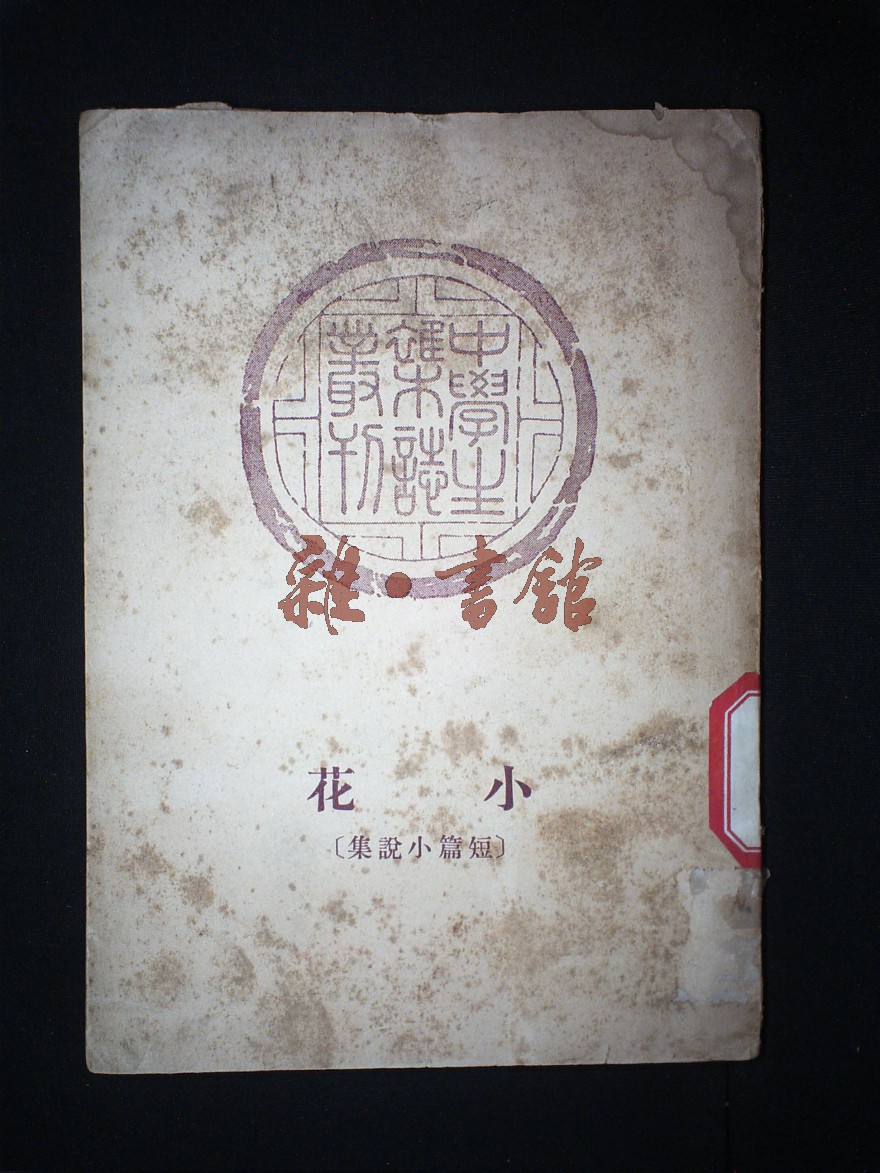 中學生
雜誌
叢刊
雜·書館
小花
〔短篇小說集〕